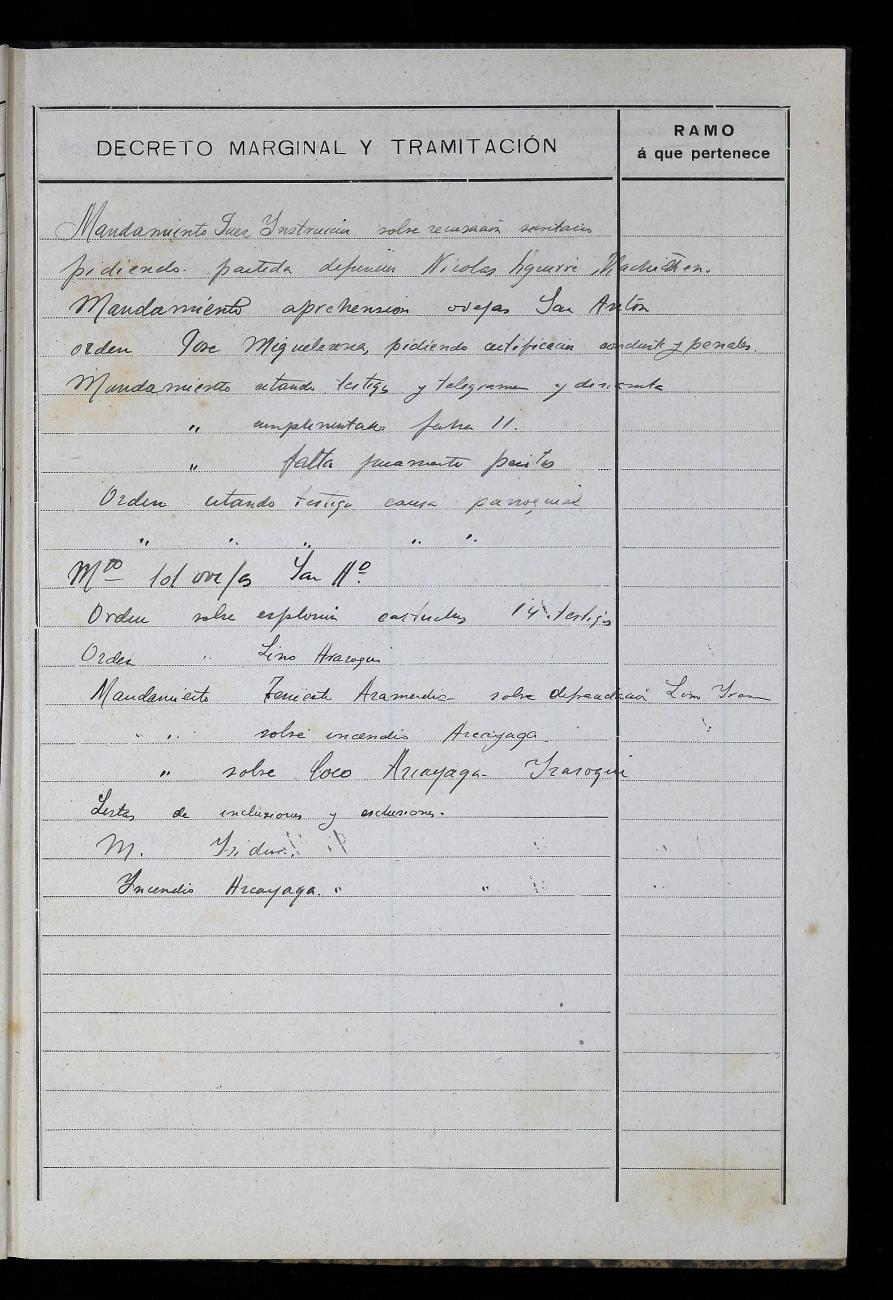 DECRETO MARGINAL Y TRAMITACIÓN
RAMO
á que pertenece
Mandamiento Juez Instrucion sobre
pidiendo. partida defuncion Nicolas Eguirre
Mandamiento aprehension ovejas San Antón
orden Jose Miguelezena, pidiendo certificacion conducta y penales.
Mandamiento citando testigo y telegrama y
" cumplimentado fecha 11.
" falta juramento peritos
Orden citando testigo causa parroquial
" " " " "
Mto 101 ovejas San
Orden sobre esplosion cartuchos 14 testigos
Orden " Lino
Mandamiento Teniente Aramendia sobre
" " sobre incendio Arcayaga.
" sobre Coco Arcayaga
Listas de inclusiones y esclusiones.
M.
Incendio Arcayaga. " "